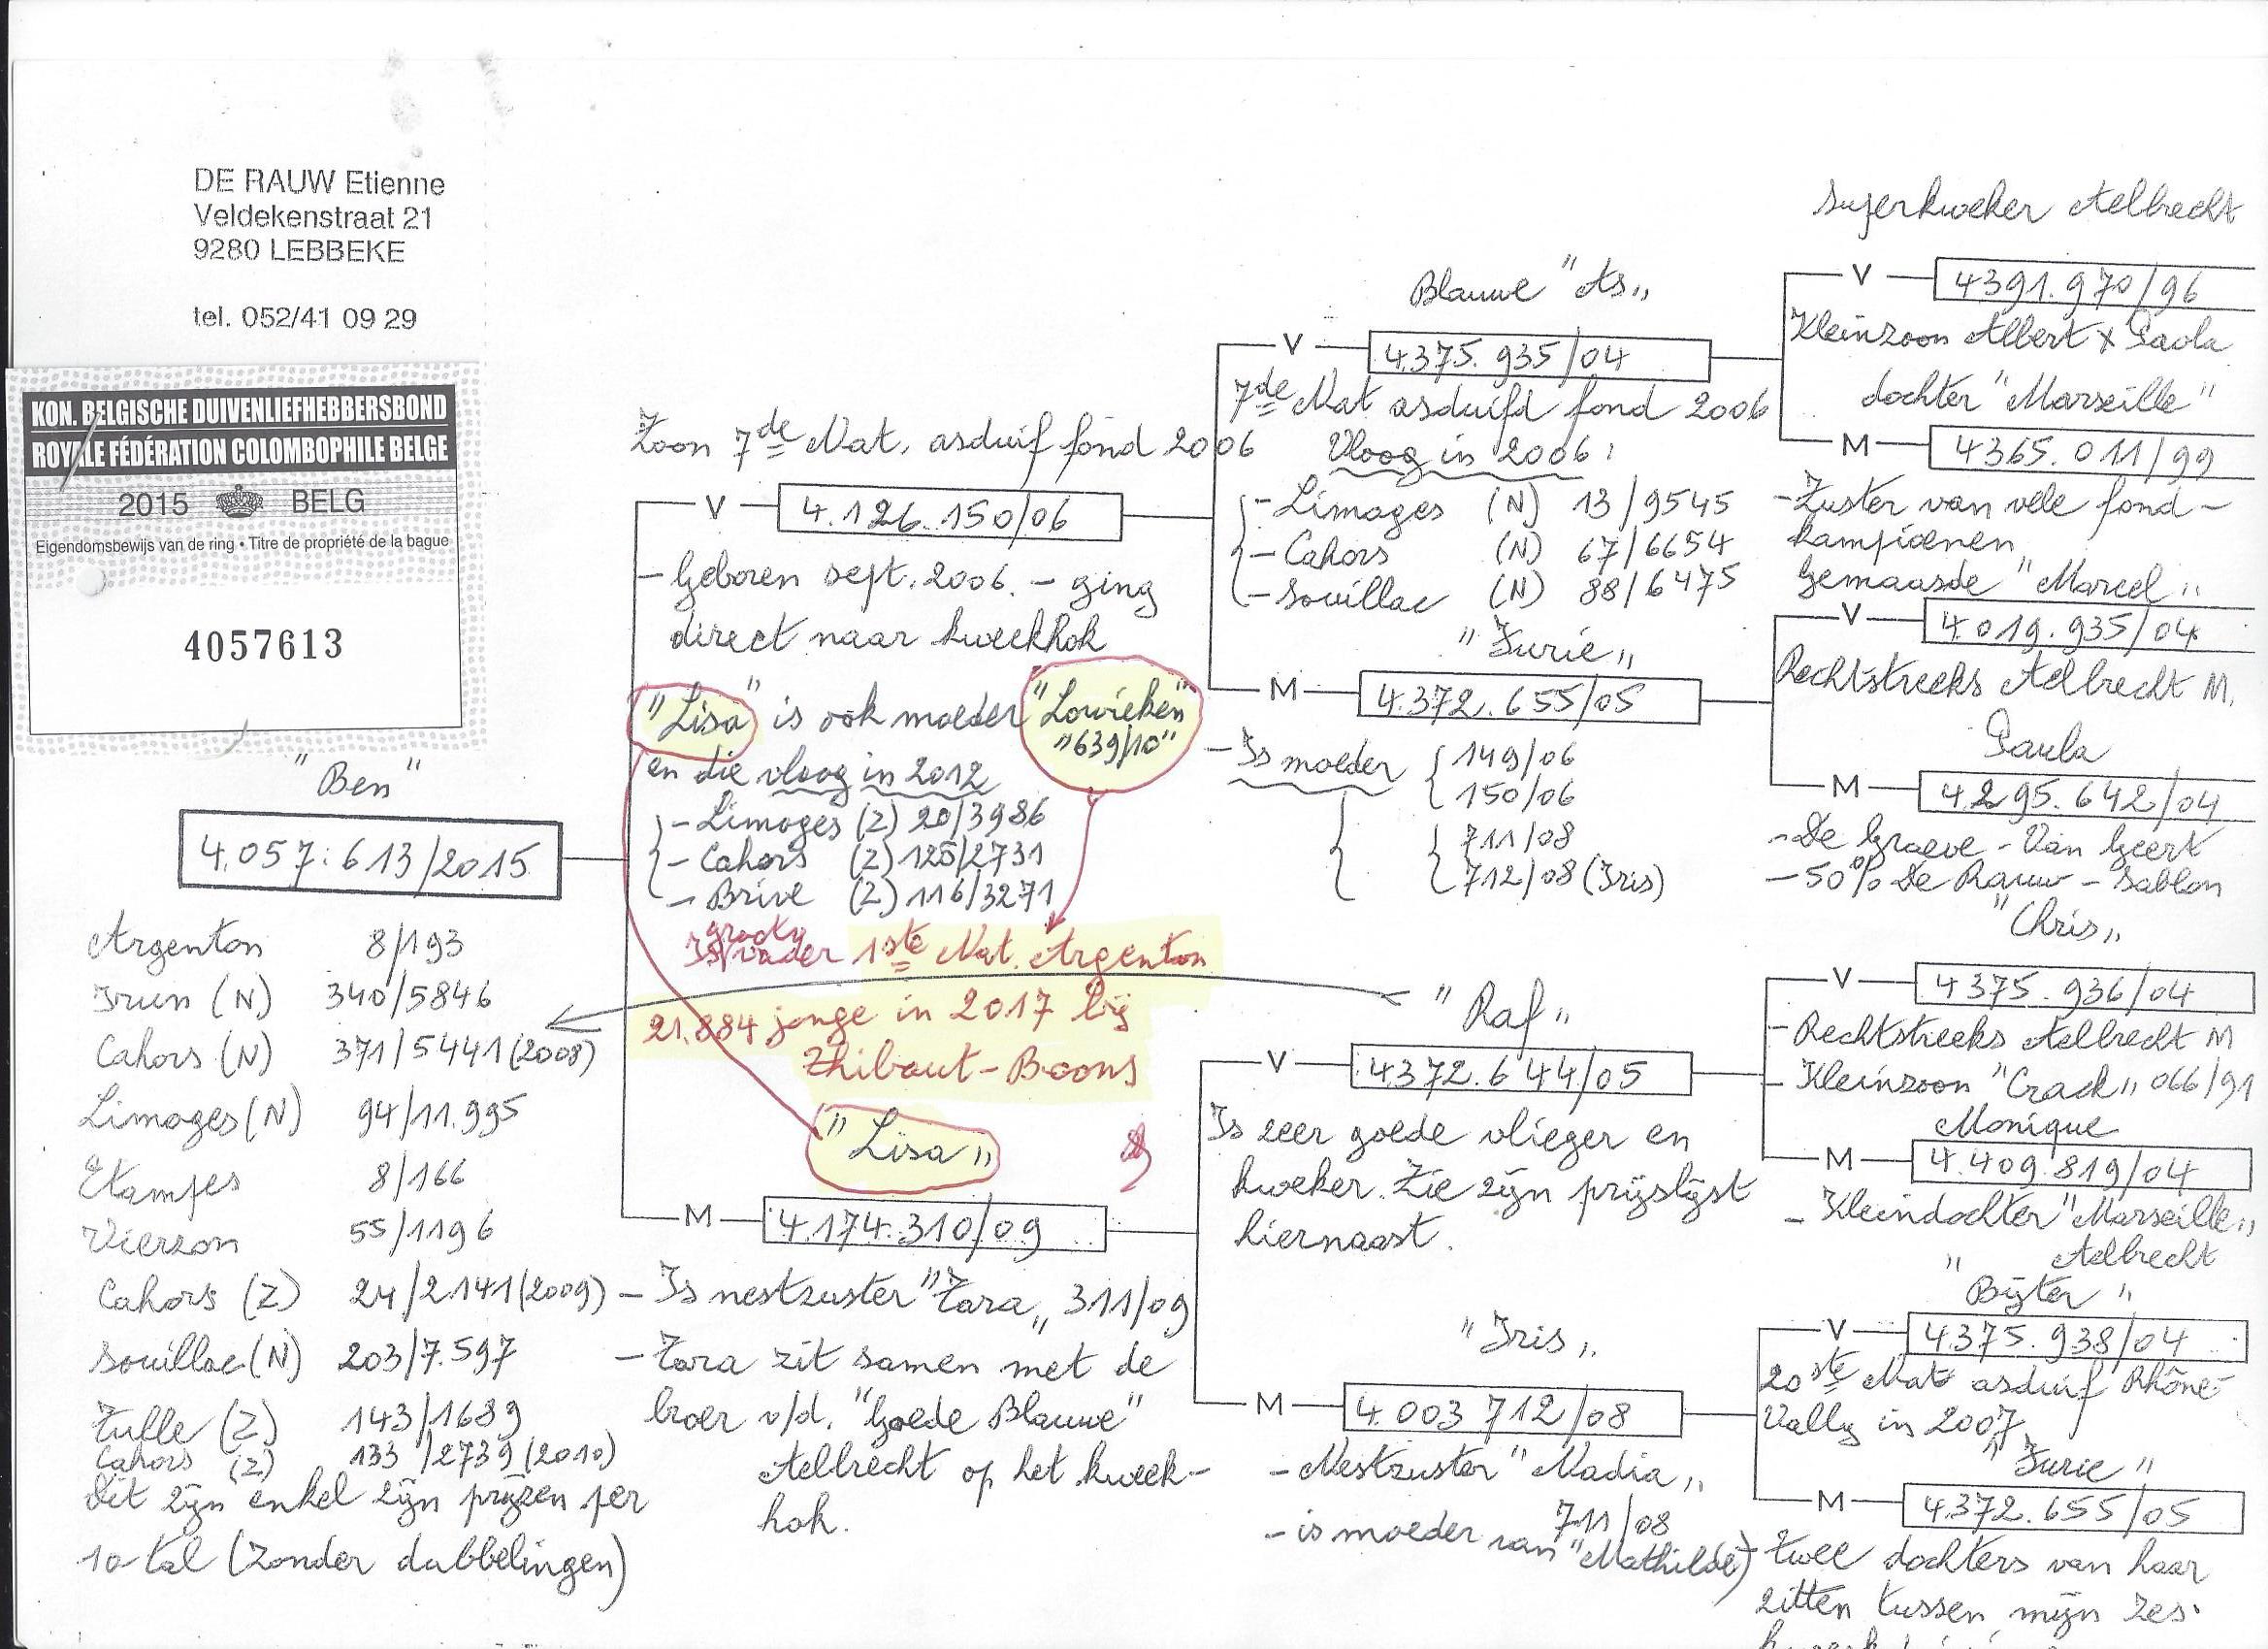 DE RAUW Etienne
Veldekenstraat 21
9280 LEBBEKE
tel. 052/41 09 29
KON. BELGISCHE DUIVENLIEFHEBBERSBOND
ROYALE FÉDÉRATION COLOMBOPHILE BELGE
2015 BELG
Eigendomsbewijs van de ring • Titre de propriété de la bague
4057613
"Ben"
4.057.613/2015
Argenton 8/193
Irun (N) 340/5846
Cahors (N) 371/5441 (2008)
Limoges (N) 94/11.995
Etampes 8/166
Vierzon 55/1196
Cahors (Z) 24/2141 (2009)
Souillac (N) 203/7.597
Tulle (Z) 143/1689
Cahors (Z) 133/2739 (2010)
Dit zijn enkel zijn prijzen per
10-tal (zonder dubbelingen)
Zoon 7de Nat. asduif fond 2006
V 4.126.150/06
- Geboren sept. 2006. - ging
direct naar kweekhok
"Lisa" is ook moeder "Lowieken"
"639/10"
en die vloog in 2012
- Limoges (Z) 20/3986
- Cahors (Z) 125/2731
- Brive (Z) 116/3271
grootv
Is vader 1ste Nat. Argenton
21.884 jonge in 2017 bij
Thibaut-Boons
"Lisa"
M 4.174.310/09
- Is nestzuster "Tara" 311/09
- Tara zit samen met de
broer v/d. "Goede Blauwe"
Aelbrecht op het kweek-
hok.
Blauwe "As"
V 4.375.935/04
7de Nat asduifd fond 2006
Vloog in 2006:
- Limoges (N) 13/9545
- Cahors (N) 67/6654
- Souillac (N) 88/6475
"Furie"
M 4.372.655/05
- Is moeder
149/06
150/06
711/08
712/08 (Iris)
"Raf"
V 4.372.644/05
Is zeer goede vlieger en
kweker. Zie zijn prijslijst
hiernaast.
"Iris"
M 4.003 712/08
- Nestzuster "Nadia"
711/08
- is moeder van "Mathilde"
superkweker Aelbrecht
V 4391.970/96
Kleinzoon Albert x Paola
dochter "Marseille"
M 4365.011/99
- Zuster van vele fond-
kampioenen
Gemaasde "Marcel"
V 4.019.935/04
Rechtstreeks Aelbrecht M.
Paula
M 4.295.642/04
- De Graeve - Van Geert
- 50% De Rauw - Sablon
"Chris"
V 4375.936/04
- Rechtstreeks Aelbrecht M
- Kleinzoon "Crack" 066/91
Monique
M 4.409.819/04
- Kleindochter "Marseille"
Aelbrecht
"Bijter"
V 4.375.938/04
20ste Nat asduif Rhône-
Vally in 2007
"Furie"
M 4.372.655/05
twee dochters van haar
zitten tussen mijn zes